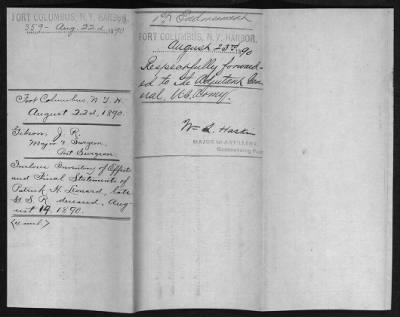 FORT COLUMBUS, N.Y. HARBOR.
359- Aug. 22d, 1890
Fort Columbus, N.Y.H.
August 22d, 1890.
Gibson, J. R.
Major & Surgeon.
Post Surgeon.
Incloses Inventory of Effects
and Final Statements of
Patrick H. Leonard, late
G. S. R. deceased, Aug-
ust 19, 1890.
1st Endorsement
FORT COLUMBUS, N.Y. HARBOR,
August 23d, 90
Respectfully forward-
ed to the Adjutant Gen-
eral, U.S. Army.
Wm L. Haskin
MAJOR 1st ARTILLERY,
Commanding Post